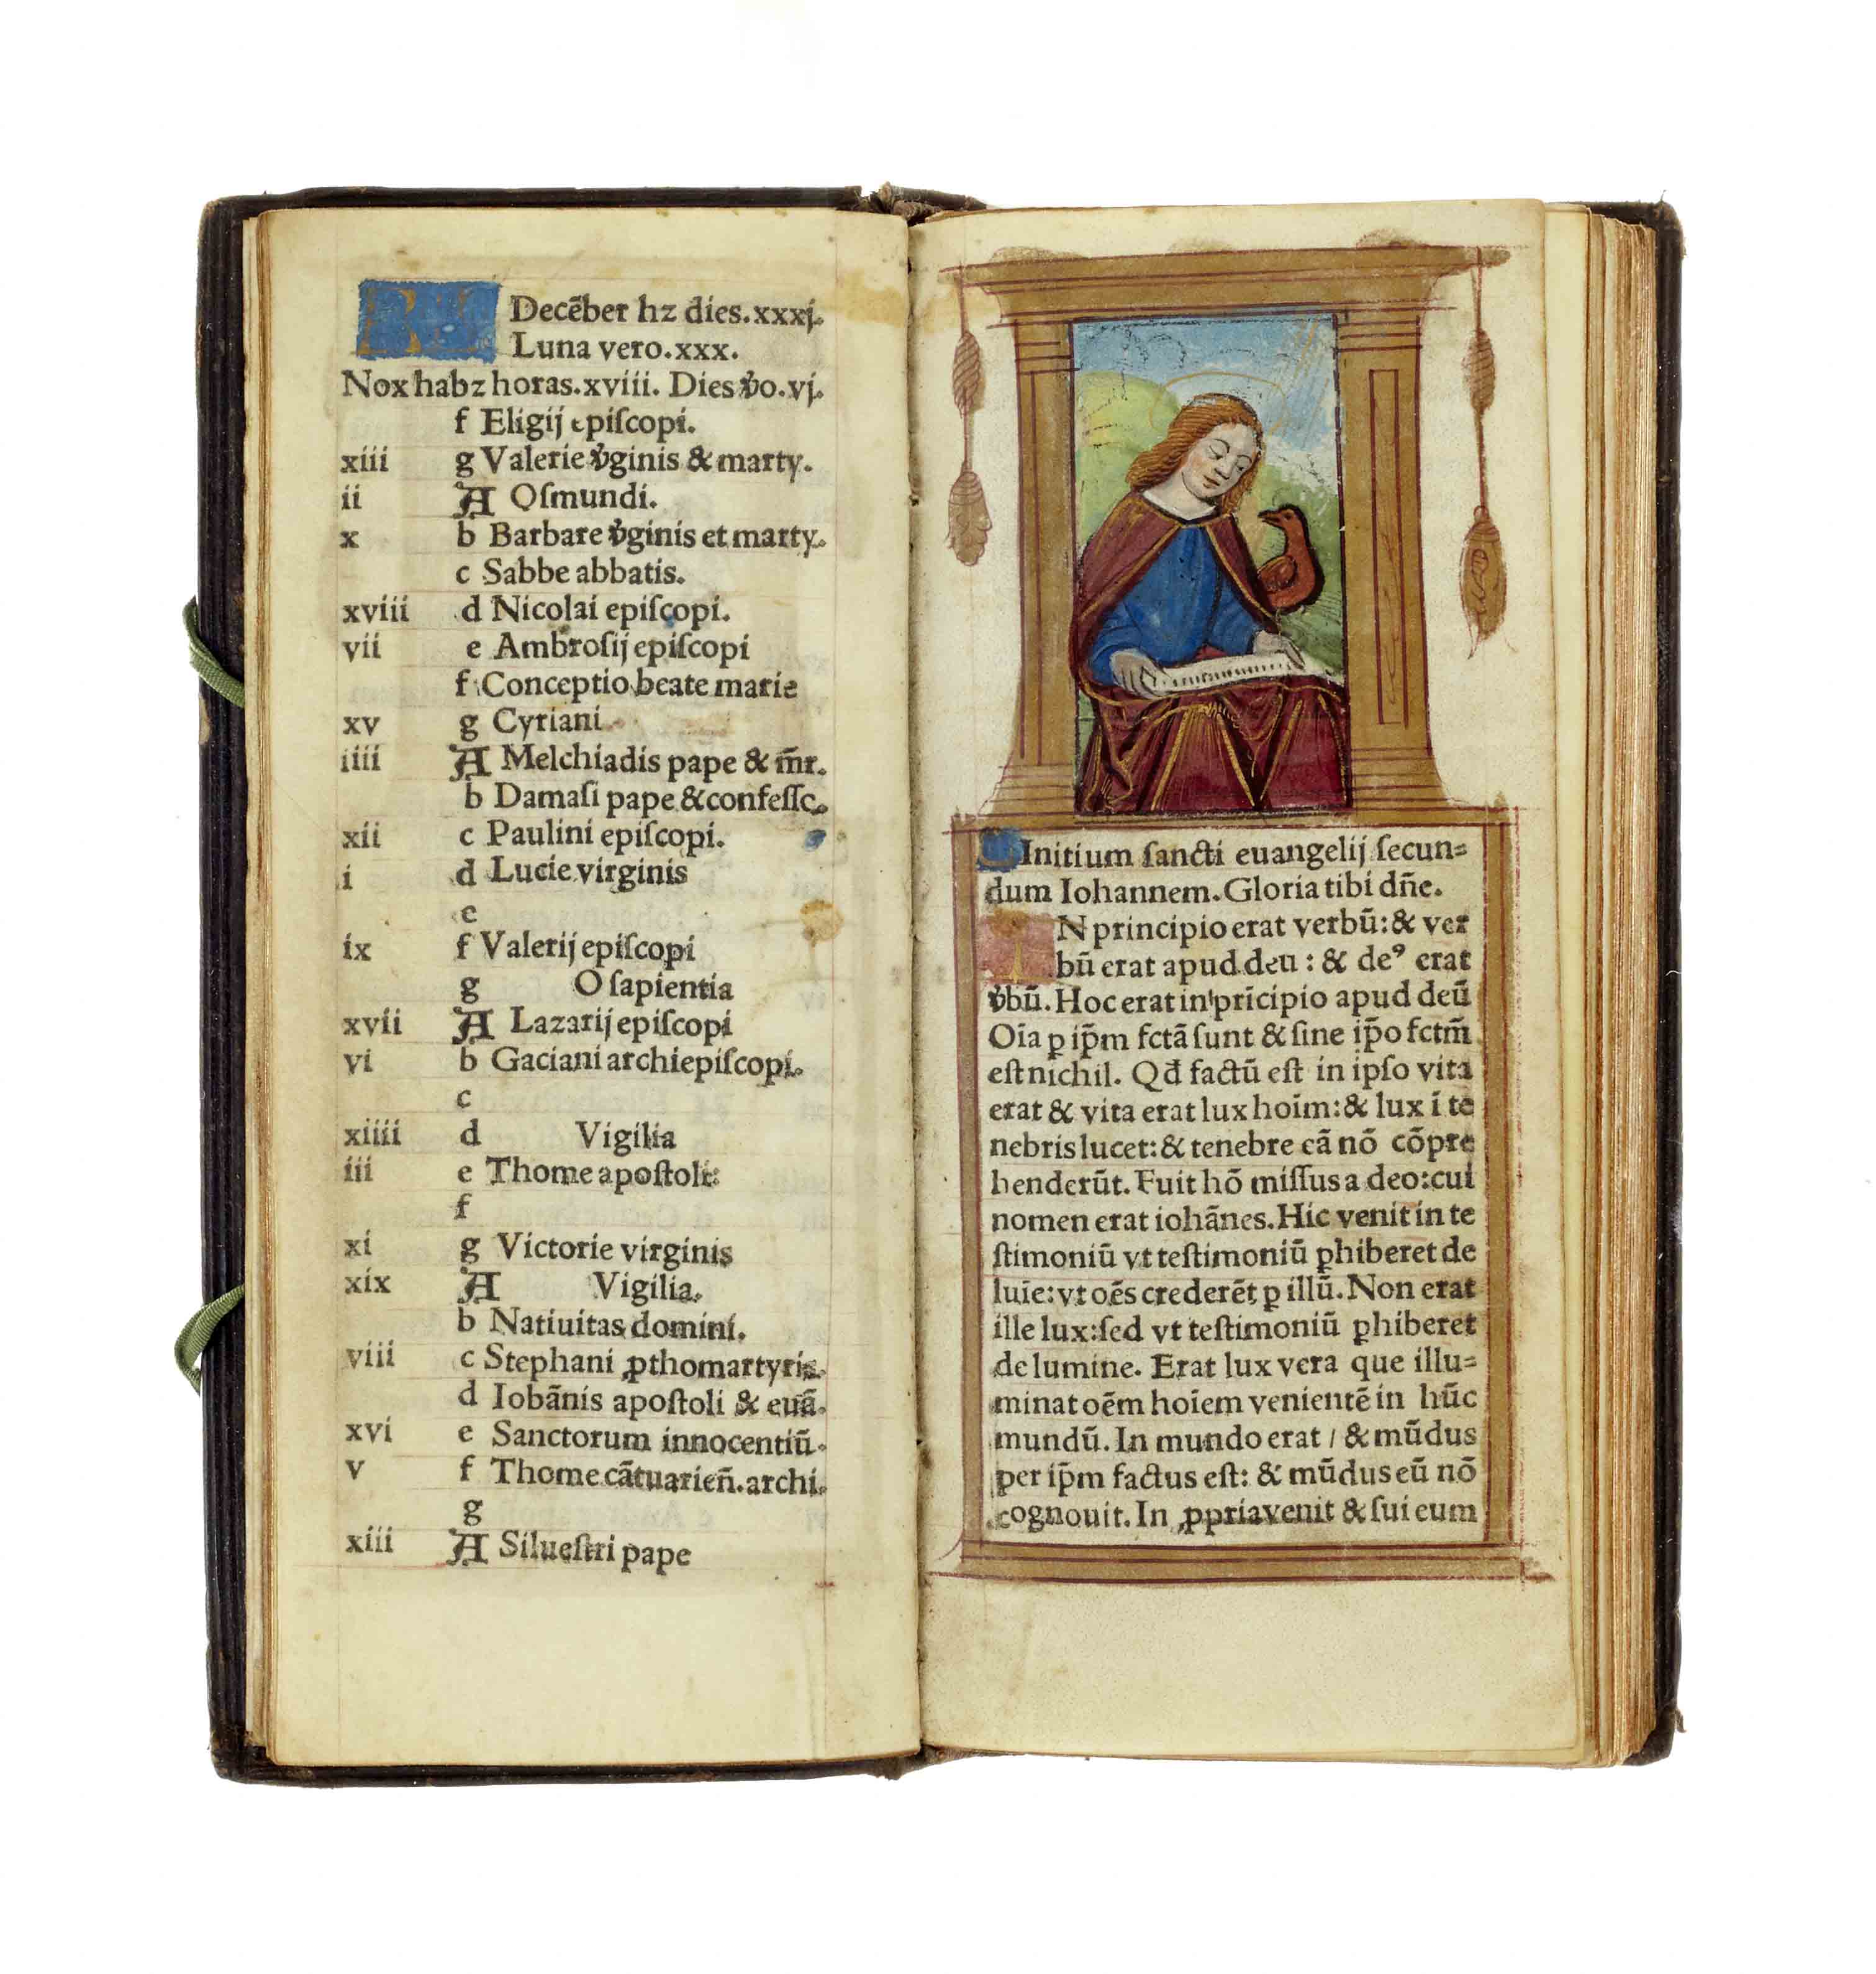 KL Decēber hz dies.xxxj.
Luna vero.xxx.
Nox habz horas.xviii. Dies v̾o.vj.
f Eligij episcopi.
xiii g Valerie v̾ginis & marty.
ii A Osmundi.
x b Barbare v̾ginis et marty.
c Sabbe abbatis.
xviii d Nicolai episcopi.
vii e Ambrosij episcopi
f Conceptio beate marie
xv g Cyriani
iiii A Melchiadis pape & m̄r.
b Damasi pape & confesso.
xii c Paulini episcopi.
i d Lucie virginis
e
ix f Valerij episcopi
g O sapientia
xvii A Lazarij episcopi
vi b Gaciani archiepiscopi.
c
xiiii d Vigilia
iii e Thome apostoli:
f
xi g Victorie virginis
xix A Vigilia.
b Natiuitas domini.
viii c Stephani ꝓthomartyris.
d Iohānis apostoli & euā.
xvi e Sanctorum innocentiū.
v f Thome cātuarien̄. archi.
g
xiii A Siluestri pape
Initium sancti euangelij secun=
dum Iohannem. Gloria tibi dn̄e.
IN principio erat verbū: & ver
bū erat apud deu : & deꝰ erat
v̾bū. Hoc erat in pricipio apud deū
Oīa ꝑ ip̄m fctā sunt & sine ip̄o fctm̄
est nichil. Qd̄ factū est in ipso vita
erat & vita erat lux hoīm: & lux ī te
nebris lucet: & tenebre eā nō cōpre
henderūt. Fuit hō missus a deo: cui
nomen erat iohānes. Hic venit in te
stimoniū vt testimoniū ꝑhiberet de
luīe: vt oēs crederēt ꝑ illū. Non erat
ille lux: sed vt testimoniū ꝑhiberet
de lumine. Erat lux vera que illu=
minat oēm hoīem venientē in hūc
mundū. In mundo erat / & mūdus
per ip̄m factus est: & mūdus eū nō
cognouit. In ꝓpria venit & sui eum